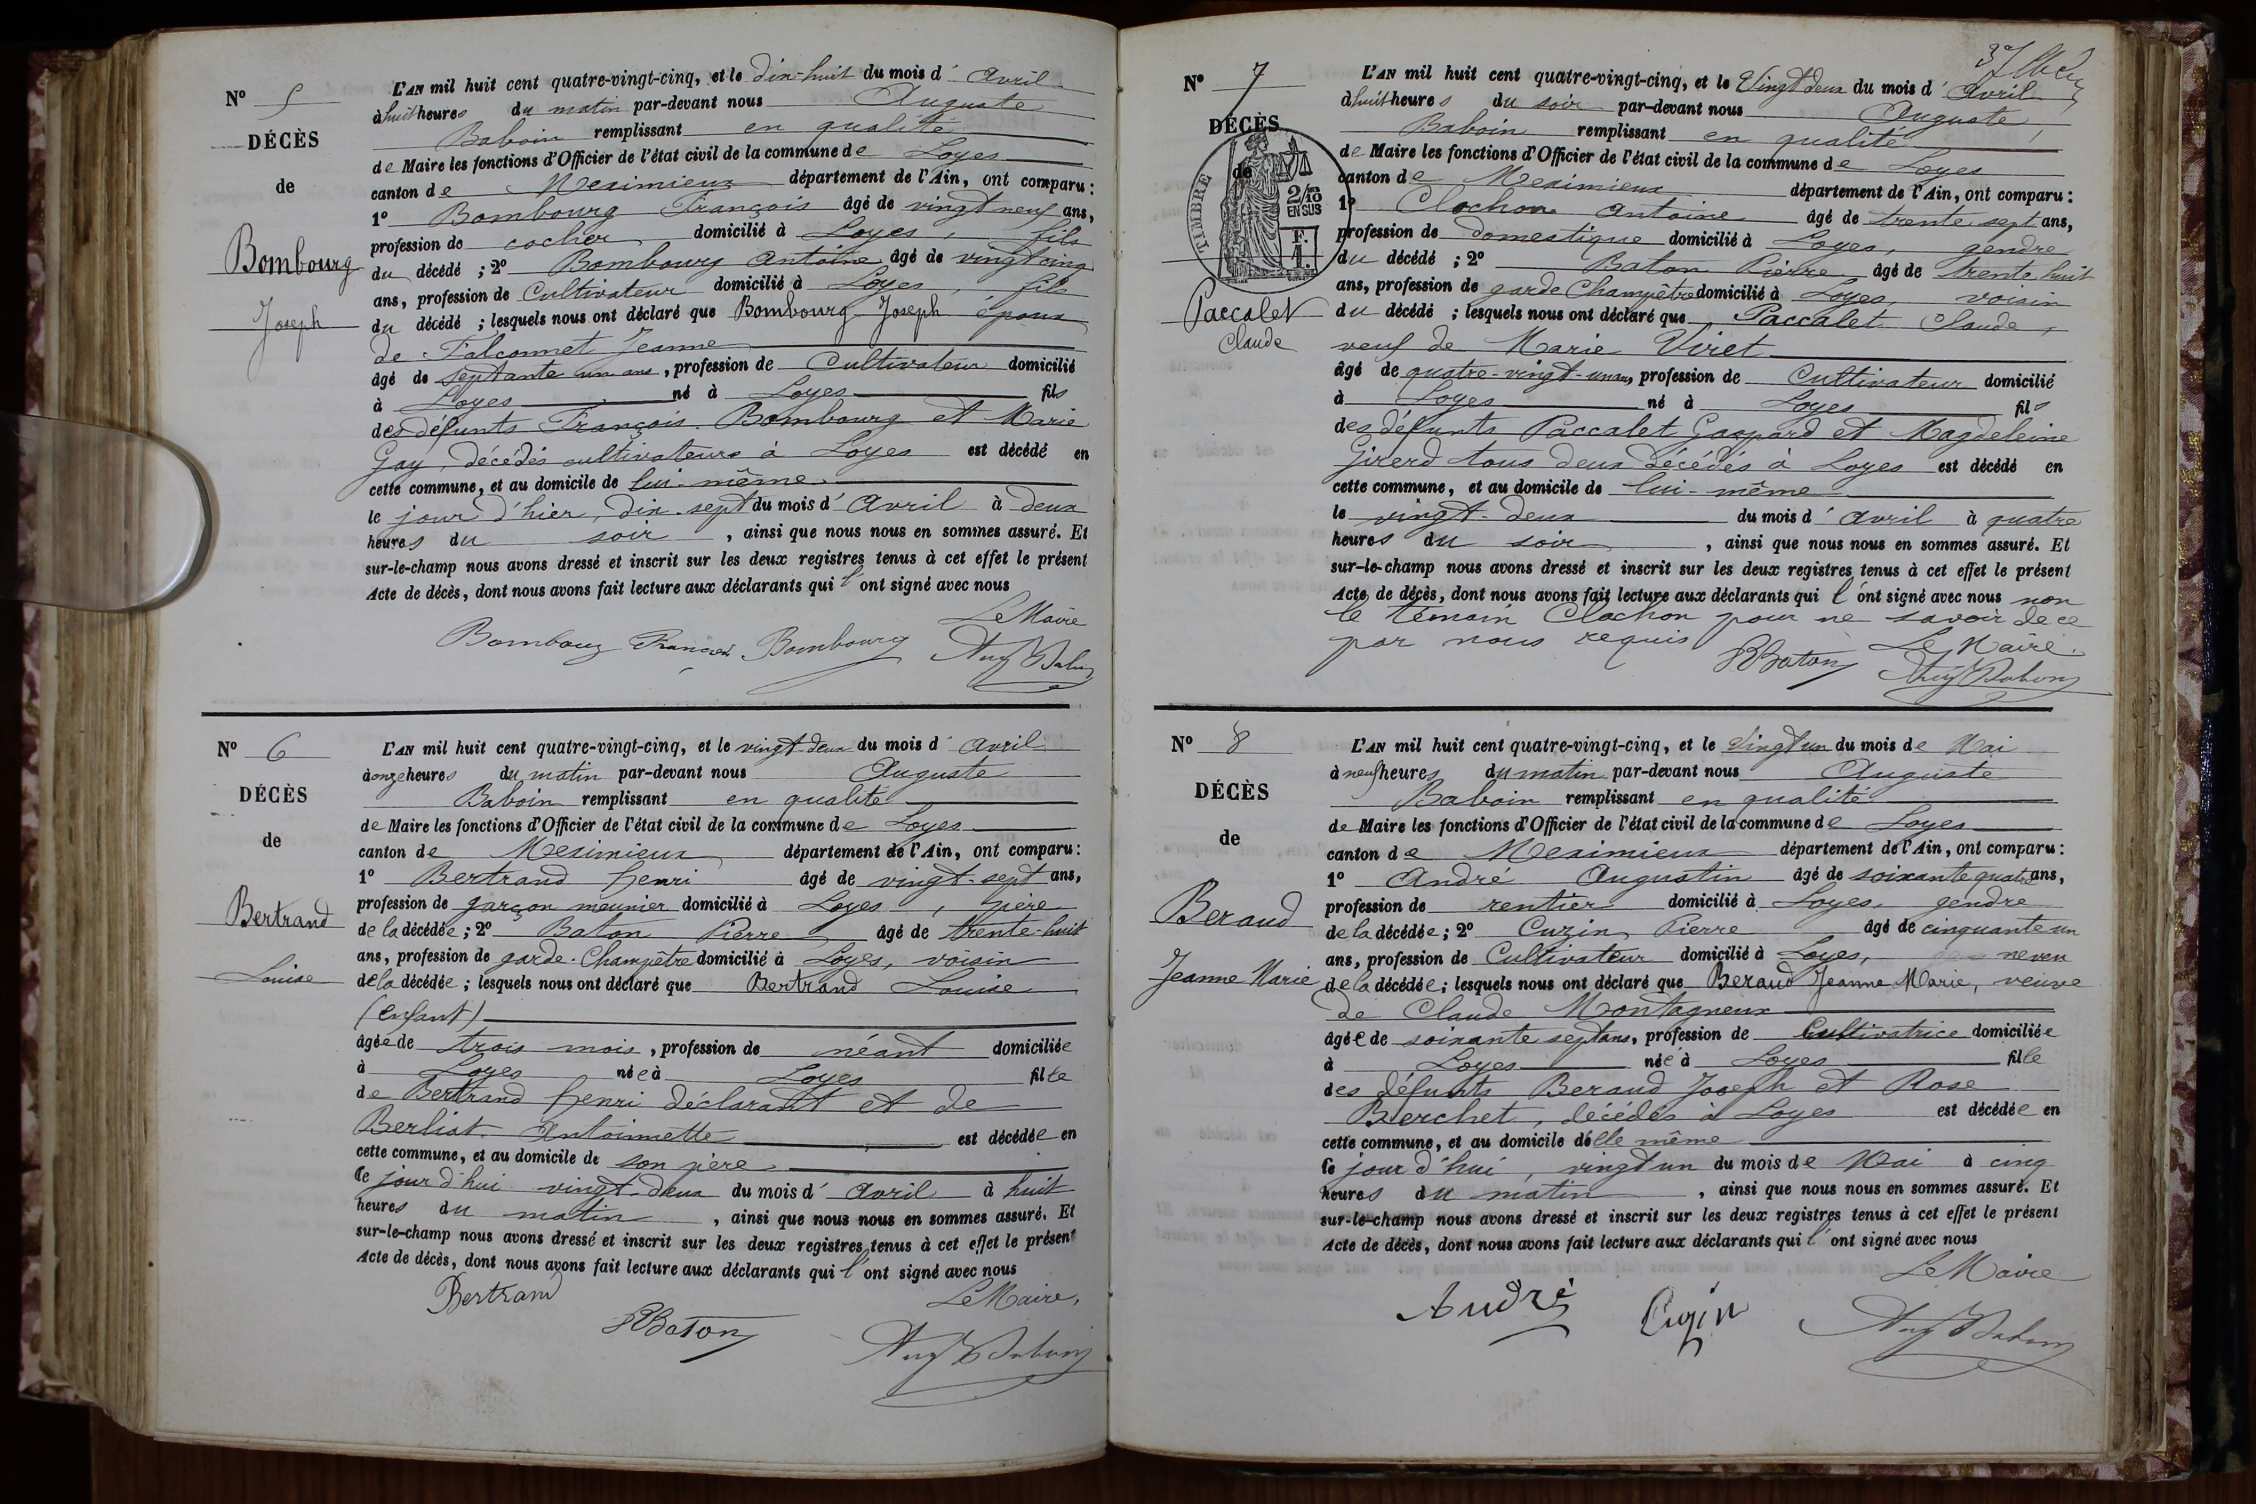 N° 5
DÉCÈS
de
Bombourg
Joseph
L'AN mil huit cent quatre-vingt-cinq, et le dix-huit du mois d'avril
à huit heures du matin par-devant nous Auguste
Baboin remplissant en qualité
de Maire les fonctions d'Officier de l'état civil de la commune de Loyes
canton de Meximieux département de l'Ain, ont comparu :
1° Bombourg François âgé de vingt neuf ans,
profession de cocher domicilié à Loyes, fils
du décédé ; 2° Bombourg Antoine âgé de vingt cinq
ans, profession de Cultivateur domicilié à Loyes, fils
du décédé ; lesquels nous ont déclaré que Bombourg Joseph époux
de Falconnet Jeanne
âgé de septante un ans, profession de Cultivateur domicilié
à Loyes né à Loyes fils
des défunts François Bombourg et Marie
Gay, décédés cultivateurs à Loyes est décédé en
cette commune, et au domicile de lui-même
le jour d'hier, dix-sept du mois d'avril à deux
heures du soir, ainsi que nous nous en sommes assuré. Et
sur-le-champ nous avons dressé et inscrit sur les deux registres tenus à cet effet le présent
Acte de décès, dont nous avons fait lecture aux déclarants qui l'ont signé avec nous
Le Maire
Bombourg François Bombourg Aug Baboin
N° 6
DÉCÈS
de
Bertrand
Louise
L'AN mil huit cent quatre-vingt-cinq, et le vingt-deux du mois d'avril
à onze heures du matin par-devant nous Auguste
Baboin remplissant en qualité
de Maire les fonctions d'Officier de l'état civil de la commune de Loyes
canton de Meximieux département de l'Ain, ont comparu :
1° Bertrand henri âgé de vingt-sept ans,
profession de garçon meunier domicilié à Loyes, père
de la décédée ; 2° Baton Pierre âgé de trente-huit
ans, profession de garde-Champêtre domicilié à Loyes, voisin
de la décédée ; lesquels nous ont déclaré que Bertrand Louise
(enfant)
âgée de trois mois, profession de néant domiciliée
à Loyes née à Loyes fille
de Bertrand henri déclarant et de
Berliat Antoinette est décédée en
cette commune, et au domicile de son père
le jour d'hui vingt-deux du mois d'avril à huit
heures du matin, ainsi que nous nous en sommes assuré. Et
sur-le-champ nous avons dressé et inscrit sur les deux registres tenus à cet effet le présent
Acte de décès, dont nous avons fait lecture aux déclarants qui l'ont signé avec nous
Bertrand Le Maire,
PBaton Aug Baboin
37
N° 7
DÉCÈS
de
TIMBRE
2/10
EN SUS
F.
1.
Paccalet
Claude
L'AN mil huit cent quatre-vingt-cinq, et le Vingt deux du mois d'avril
à huit heures du soir par-devant nous Auguste
Baboin remplissant en qualité
de Maire les fonctions d'Officier de l'état civil de la commune de Loyes
canton de Meximieux département de l'Ain, ont comparu :
1° Clochon Antoine âgé de trente sept ans,
profession de domestique domicilié à Loyes, gendre
du décédé ; 2° Baton Pierre âgé de trente huit
ans, profession de garde Champêtre domicilié à Loyes, voisin
du décédé ; lesquels nous ont déclaré que Paccalet Claude,
veuf de Marie Viret
âgé de quatre-vingt-un ans, profession de Cultivateur domicilié
à Loyes né à Loyes fils
des défunts Paccalet Gaspard et Magdeleine
Girerd tous deux décédés à Loyes est décédé en
cette commune, et au domicile de lui-même
le vingt-deux du mois d'avril à quatre
heures du soir, ainsi que nous nous en sommes assuré. Et
sur-le-champ nous avons dressé et inscrit sur les deux registres tenus à cet effet le présent
Acte de décès, dont nous avons fait lecture aux déclarants qui l'ont signé avec nous non
le témoin Clochon pour ne savoir de ce
par nous requis Le Maire.
PBaton Aug Baboin
N° 8
DÉCÈS
de
Beraud
Jeanne Marie
L'AN mil huit cent quatre-vingt-cinq, et le Vingt un du mois de Mai
à neuf heures du matin par-devant nous Auguste
Baboin remplissant en qualité
de Maire les fonctions d'Officier de l'état civil de la commune de Loyes
canton de Meximieux département de l'Ain, ont comparu :
1° André Augustin âgé de soixante quatre ans,
profession de rentier domicilié à Loyes, gendre
de la décédée ; 2° Cuzin Pierre âgé de cinquante un
ans, profession de Cultivateur domicilié à Loyes, neveu
de la décédée ; lesquels nous ont déclaré que Beraud Jeanne Marie, veuve
de Claude Montagneux
âgée de soixante sept ans, profession de Cultivatrice domiciliée
à Loyes née à Loyes fille
des défunts Beraud Joseph et Rose
Berchet, décédés à Loyes est décédée en
cette commune, et au domicile d'elle même
le jour d'hui, vingt un du mois de Mai à cinq
heures du matin, ainsi que nous nous en sommes assuré. Et
sur-le-champ nous avons dressé et inscrit sur les deux registres tenus à cet effet le présent
Acte de décès, dont nous avons fait lecture aux déclarants qui l'ont signé avec nous
Le Maire
André Cuzin Aug Baboin